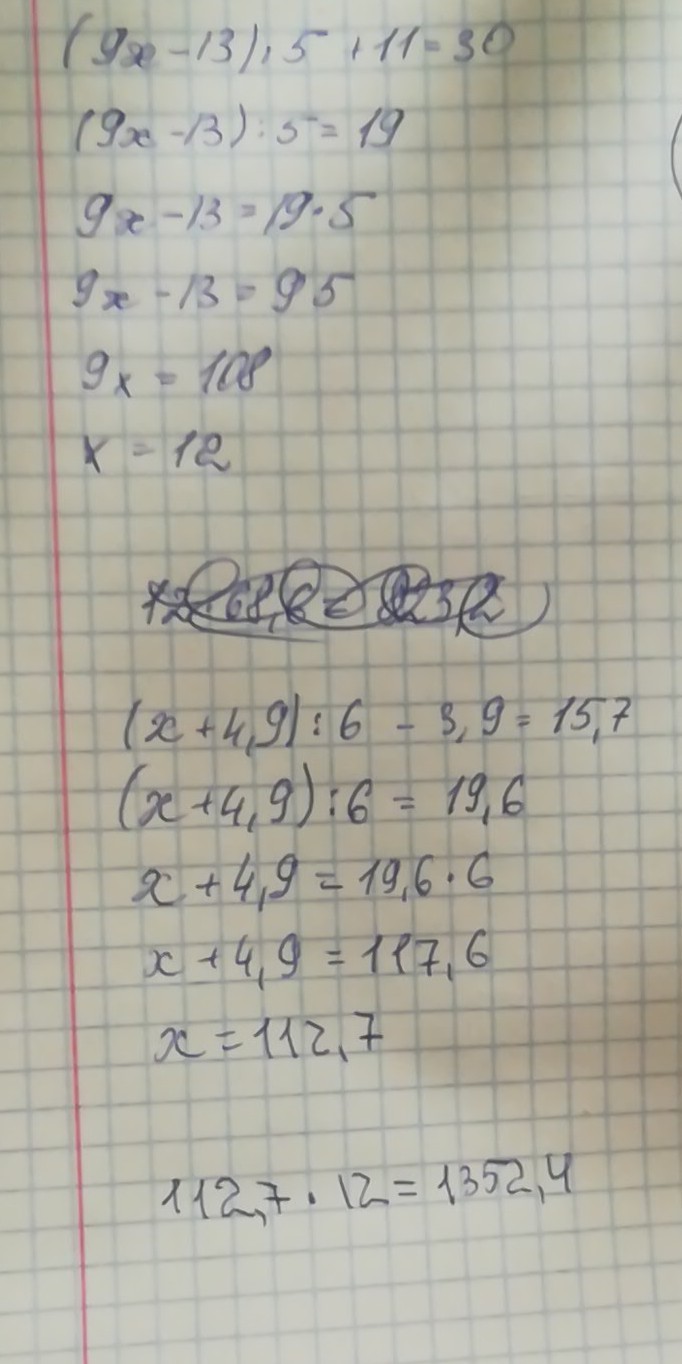 (9x - 13) : 5 + 11 = 30
(9x - 13) : 5 = 19
9x - 13 = 19 · 5
9x - 13 = 95
9x = 108
x = 12
(x + 4,9) : 6 - 3,9 = 15,7
(x + 4,9) : 6 = 19,6
x + 4,9 = 19,6 · 6
x + 4,9 = 117,6
x = 112,7
112,7 · 12 = 1352,4